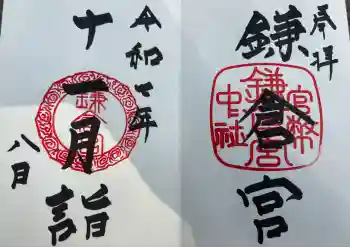 奉拝
鎌倉宮
鎌倉宮
官幣中社
令和七年
十一月詣
八日